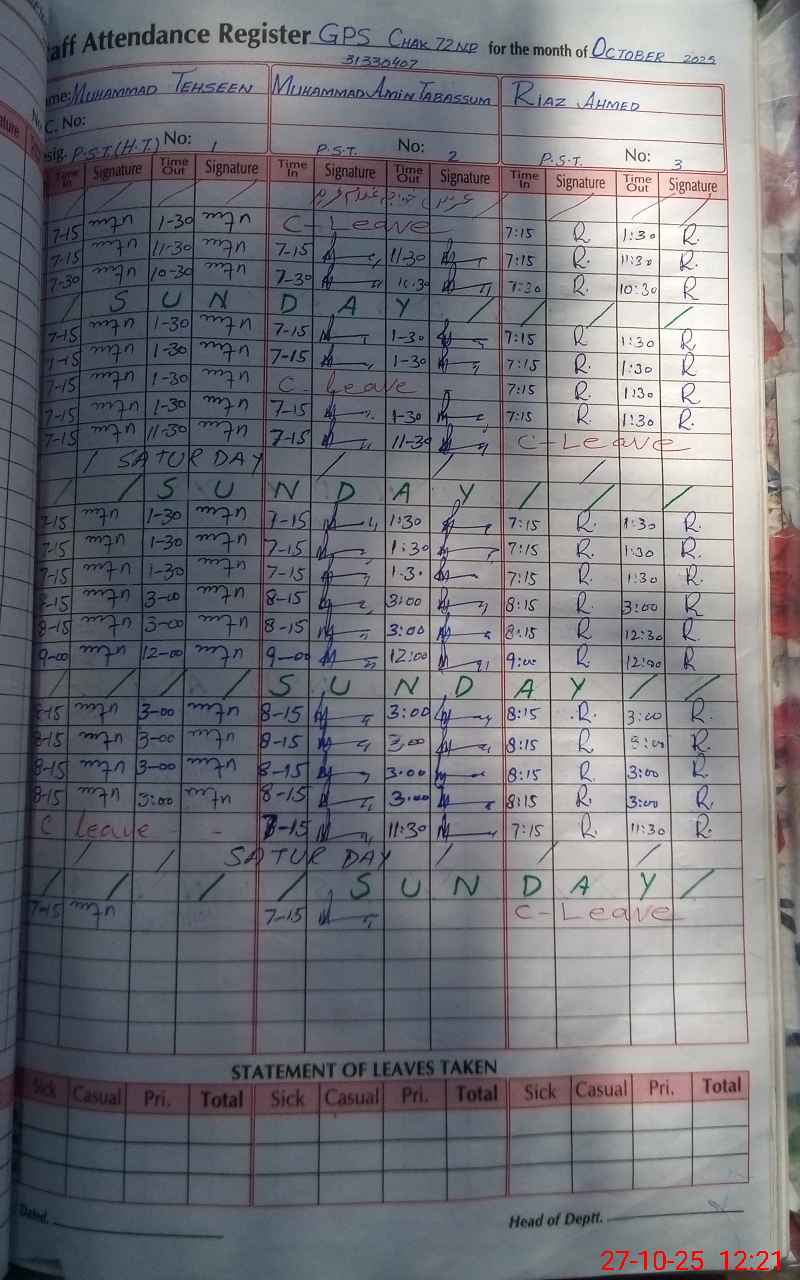 aff Attendance Register GPS CHAK 72NP for the month of OCTOBER 2025
31330407
me: MUHAMMAD TEHSEEN MUHAMMAD AMIN TABASSUM RIAZ AHMED
C. No:
sig. P.S.T.(H.T.) No: 1 P.S.T. No: 2 P.S.T. No: 3
Time In Signature Time Out Signature Time In Signature Time Out Signature Time In Signature Time Out Signature
7-15 1-30 C-Leave 7:15 R 1:30 R.
7-15 11-30 7-15 11-30 7:15 R. 11:30 R.
7-30 10-30 7-30 10.30 7:30 R. 10:30 R
SUNDAY
7-15 1-30 7-15 1-30 7:15 R 1:30 R
7-15 1-30 7-15 1-30 7:15 R. 1:30 R
7-15 1-30 C-Leave 7:15 R. 1:30 R
7-15 1-30 7-15 1-30 7:15 R. 1:30 R.
7-15 11-30 7-15 11-30 C-Leave
SATURDAY
SUNDAY
7-15 1-30 7-15 1:30 7:15 R. 1:30 R.
7-15 1-30 7-15 1:30 7:15 R. 1:30 R.
7-15 1-30 7-15 1.30 7:15 R. 1:30 R.
8-15 3-00 8-15 3:00 8:15 R. 3:00 R
8-15 3-00 8-15 3:00 8:15 R 12:30 R.
9-00 12-00 9-00 12:00 9:00 R. 12:00 R
SUNDAY
8-15 3-00 8-15 3:00 8:15 R. 3:00 R.
8-15 3-00 8-15 3.00 8:15 R 3:00 R.
8-15 3-00 8-15 3.00 8:15 R. 3:00 R
8-15 3:00 8-15 3.00 8:15 R. 3:00 R
C Leave - - 7-15 11:30 7:15 R. 11:30 R.
SATURDAY
SUNDAY
7-15 7-15 C-Leave
STATEMENT OF LEAVES TAKEN
Sick Casual Pri. Total Sick Casual Pri. Total Sick Casual Pri. Total
Dated. Head of Deptt.
27-10-25 12:21